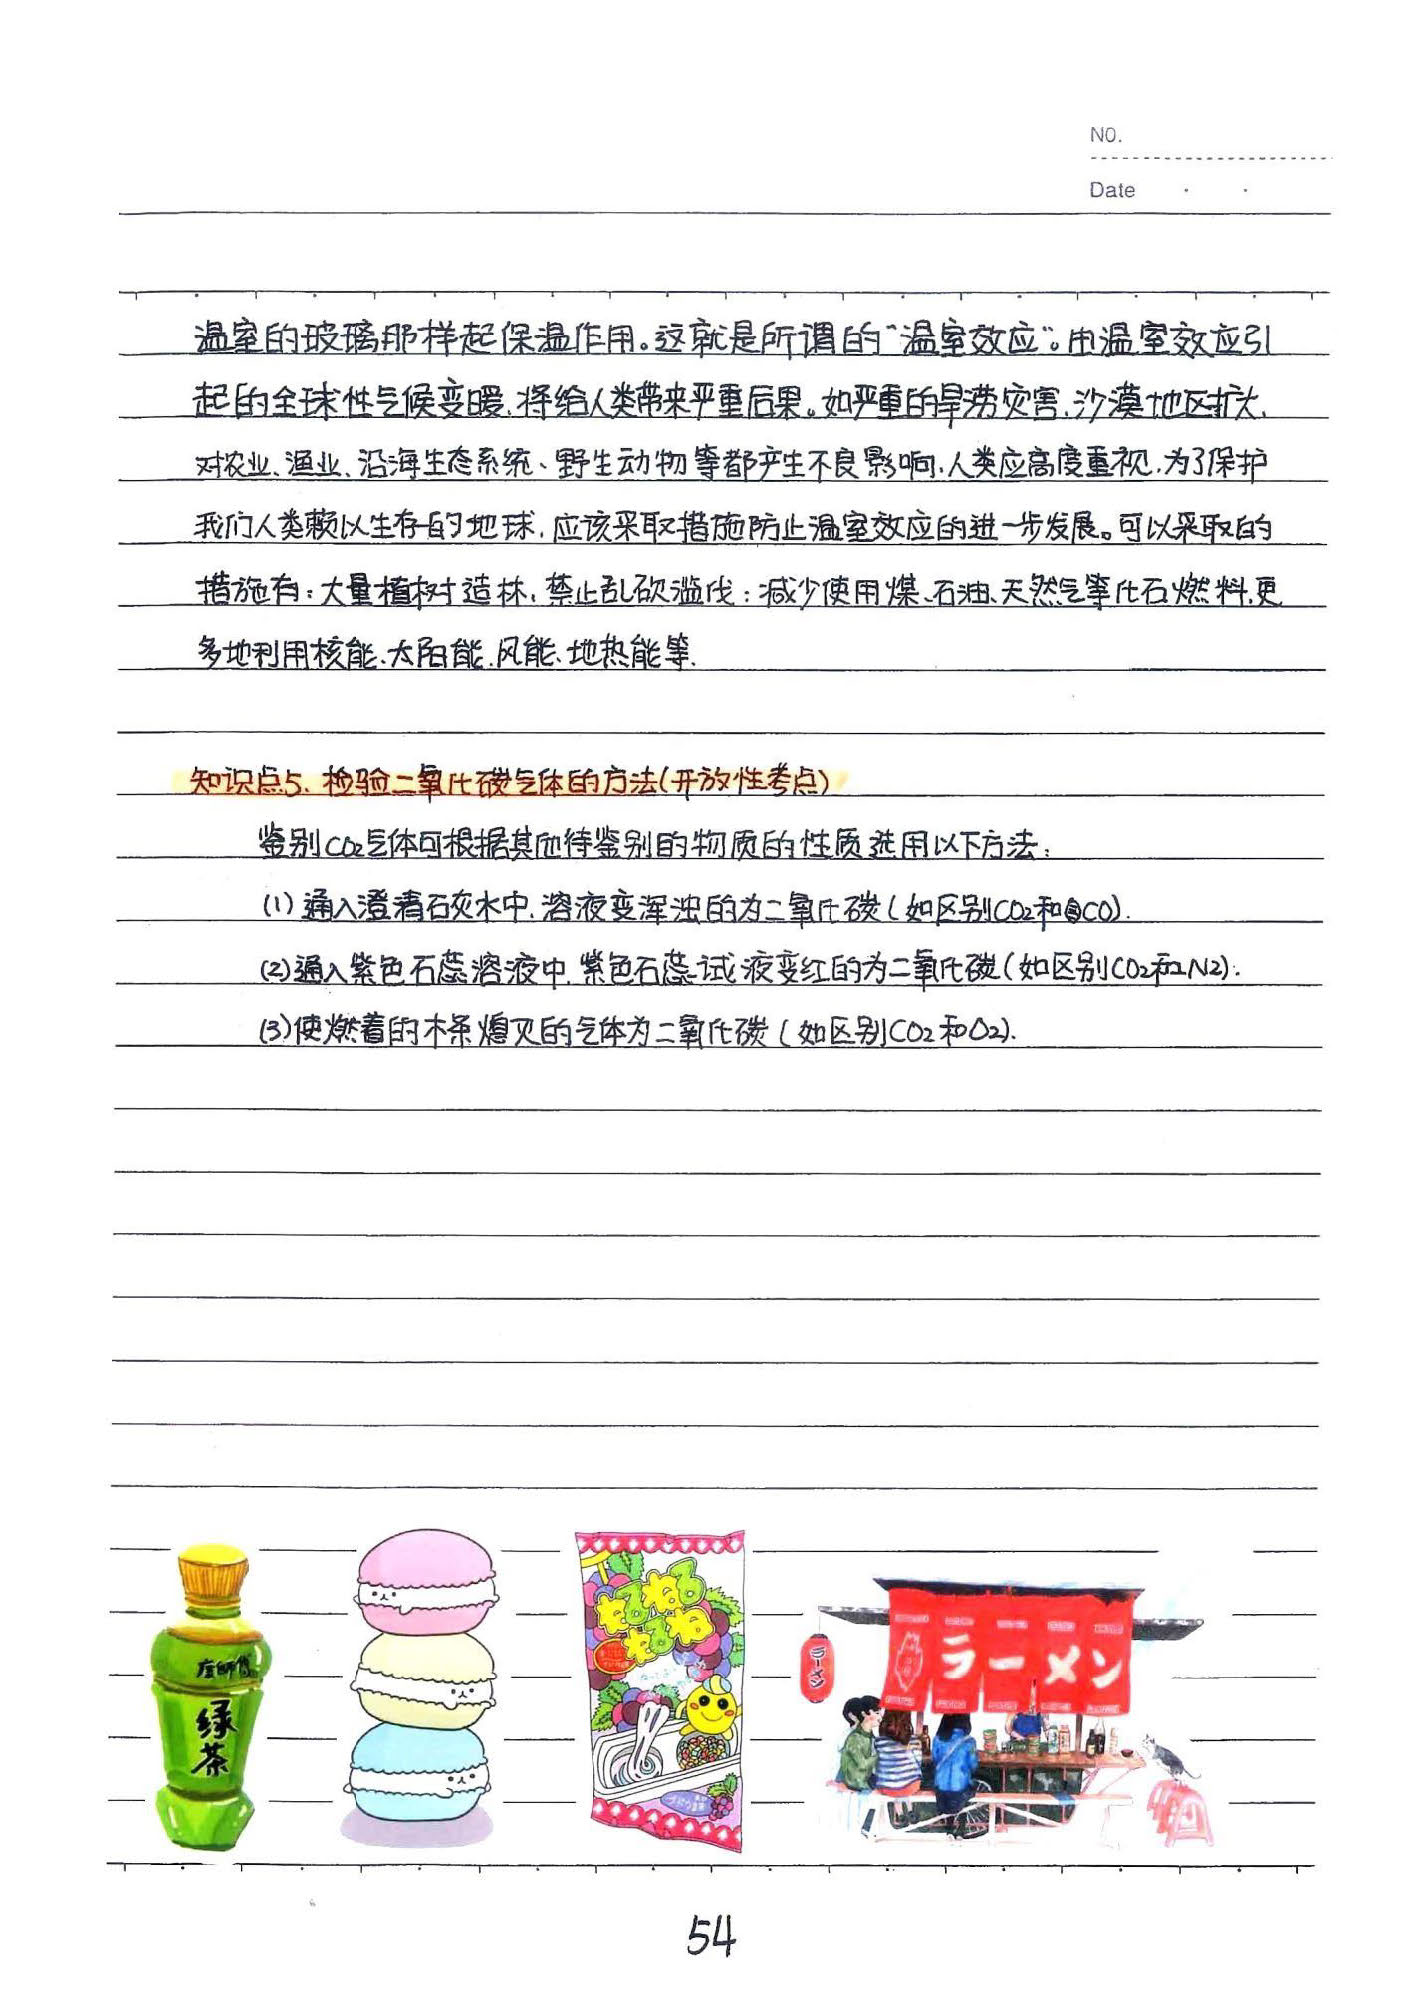 NO.
Date
温室的玻璃那样起保温作用。这就是所谓的“温室效应”。由温室效应引
起的全球性气候变暖,将给人类带来严重后果。如严重的旱涝灾害,沙漠地区扩大,
对农业、渔业、沿海生态系统、野生动物等都产生不良影响,人类应高度重视,为了保护
我们人类赖以生存的地球,应该采取措施防止温室效应的进一步发展。可以采取的
措施有:大量植树造林,禁止乱砍滥伐;减少使用煤、石油、天然气等化石燃料,更
多地利用核能、太阳能、风能、地热能等.
知识点5、检验二氧化碳气体的方法(开放性考点)
鉴别CO2气体可根据其他待鉴别的物质的性质选用以下方法:
(1)通入澄清石灰水中,溶液变浑浊的为二氧化碳(如区别CO2和CO).
(2)通入紫色石蕊溶液中,紫色石蕊试液变红的为二氧化碳(如区别CO2和N2).
(3)使燃着的木条熄灭的气体为二氧化碳(如区别CO2和O2).
绿茶
ねるねる
ねるね
ラーメン
ラーメン
54